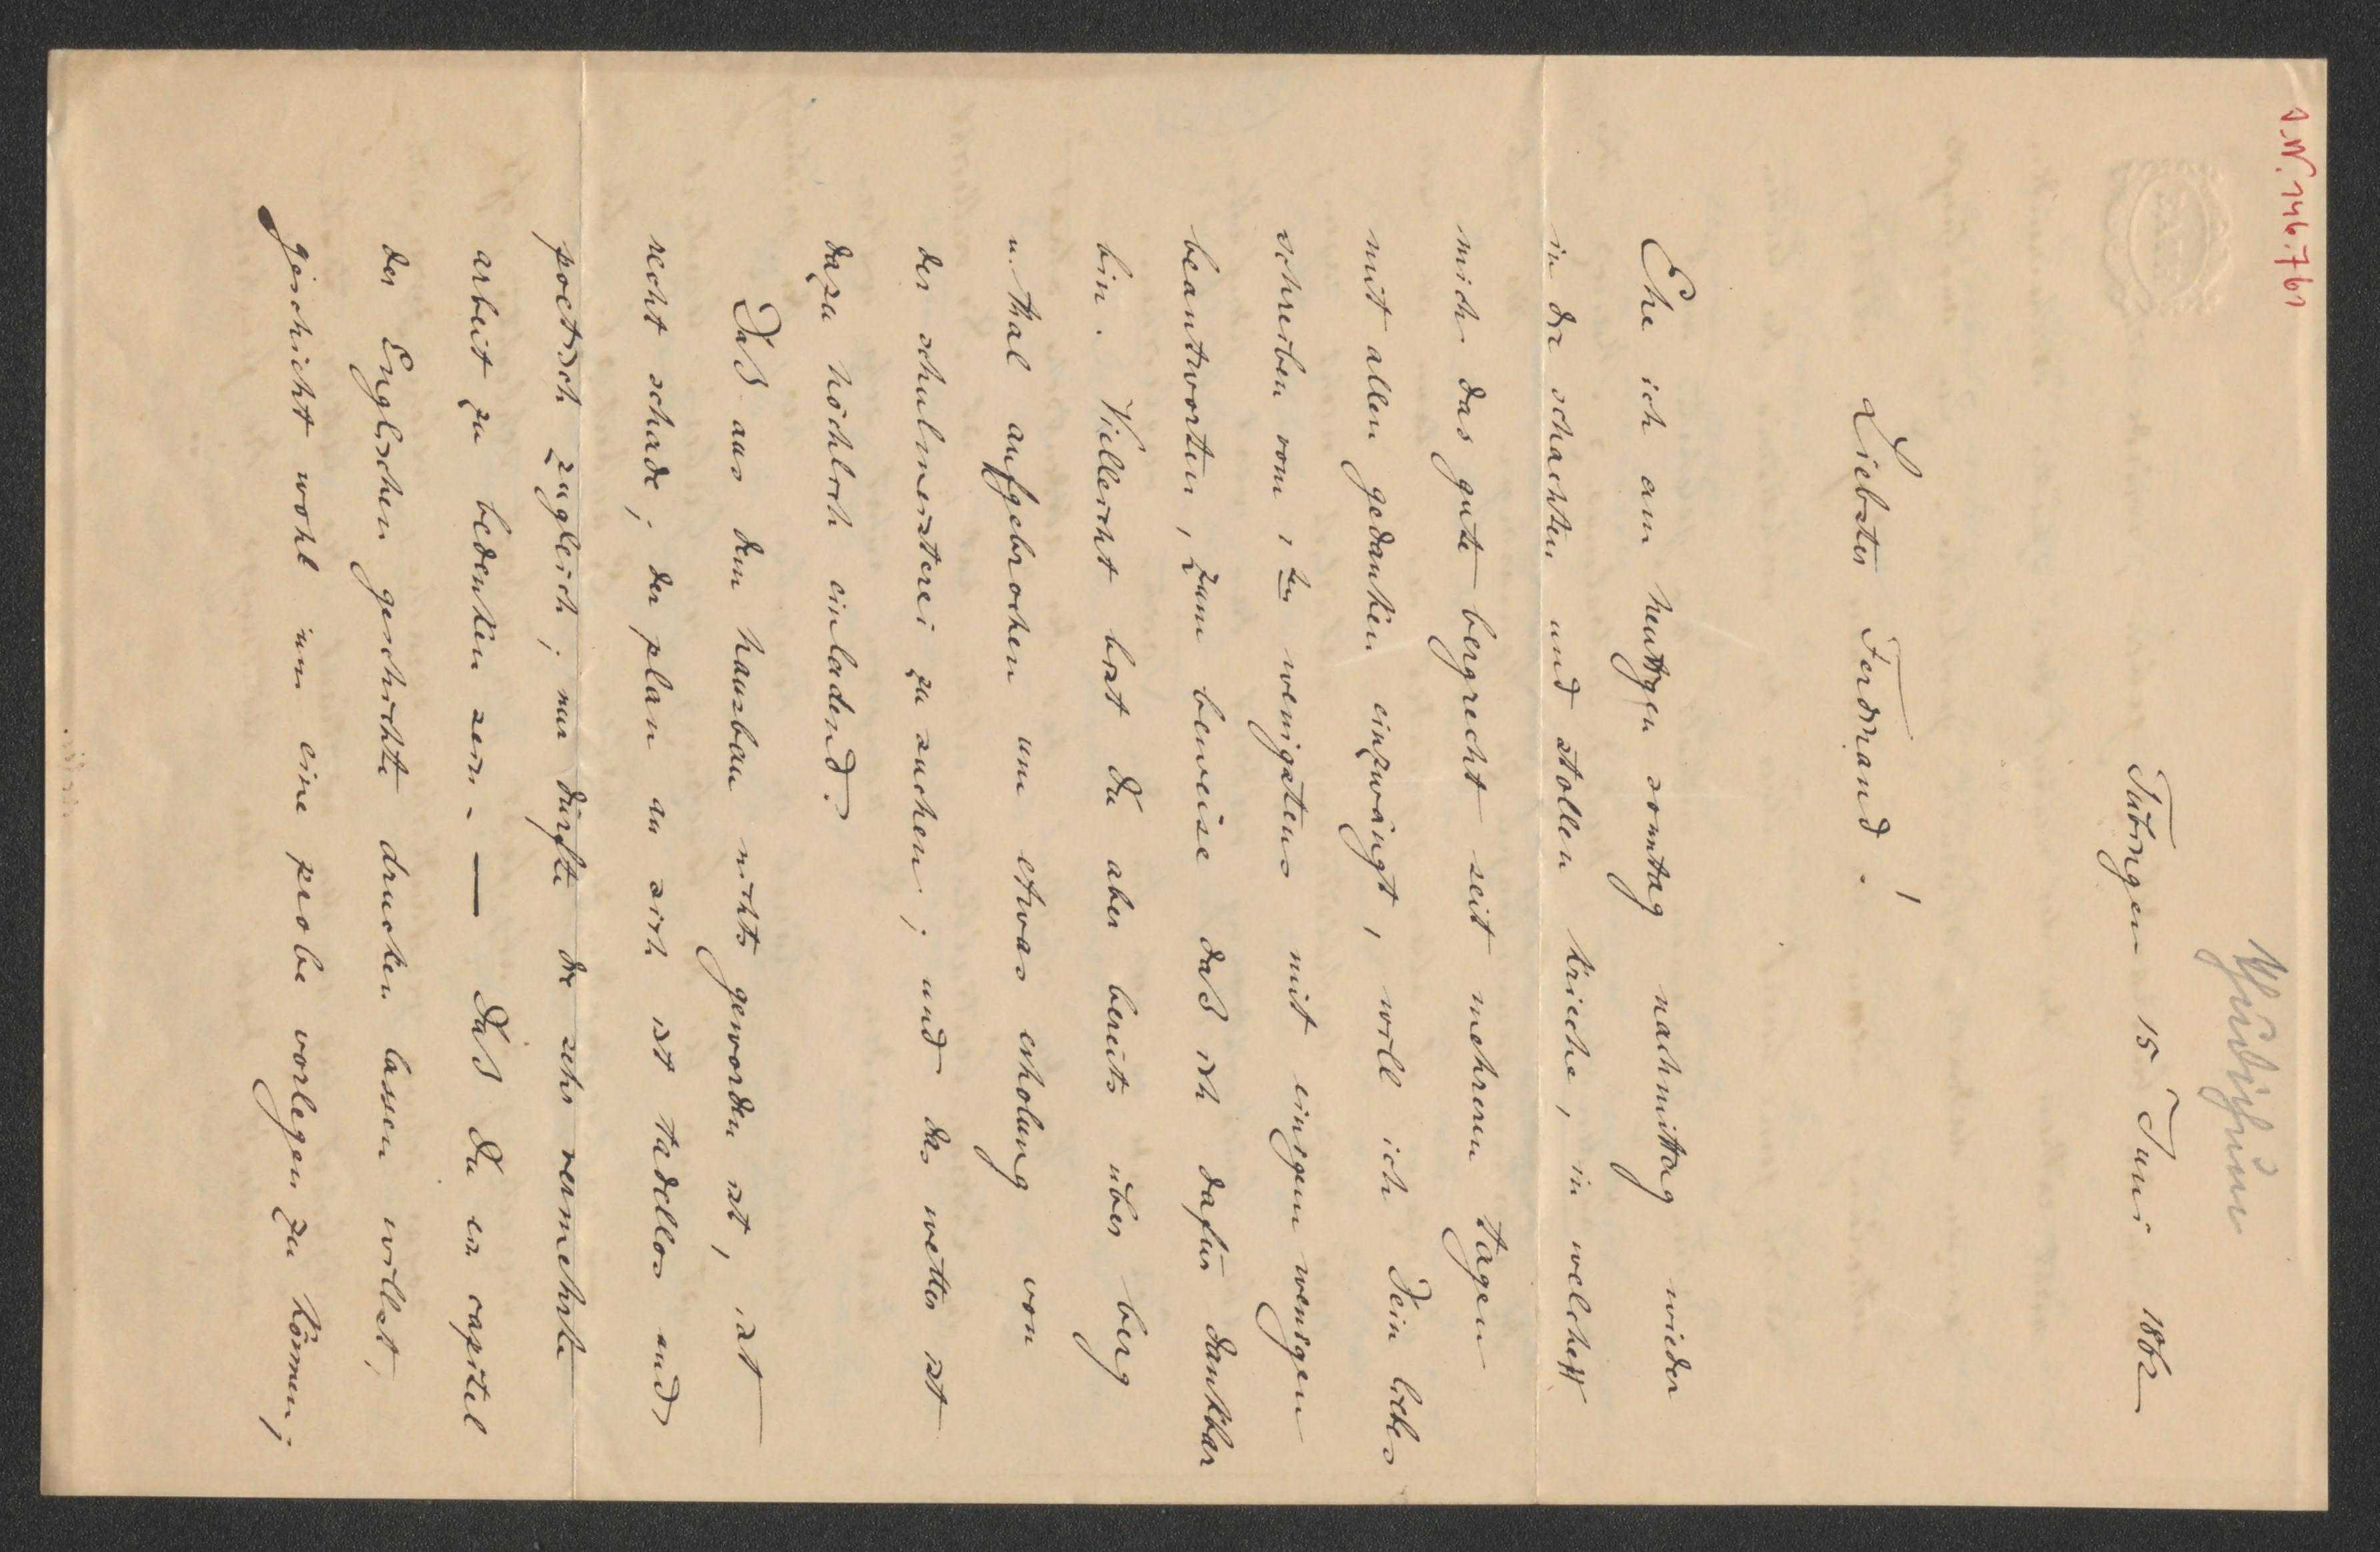 I.N. 146.761
Tübingen 15 Juni 1862
Liebster Ferdinand!
Ehe ich am heutigen sonntag nachmittag wieder
in die schachten und stollen krieche, in welche
mich das gute bergrecht seit mehreren tagen
mit allen gedanken einzwängt, will ich Dein liebes
schreiben vom wenigstens mit einigen wenigen
beantworten, zum beweise daß ich dafür dankbar
bin. Villeicht bist du aber bereits über berg
u. thal aufgebrochen um etwas erholung von
der schulmeisterei zu suchen; und das wetter ist
dazu höchlich einladend.
Daß aus dem hausbau nichts geworden ist, ist
recht schade; der plan an sich ist tadellos und
poetisch zugleich; nur dürfte die sehr vermehrte
arbeit zu bedenken sein. — Daß du ein capitel
der Englischen geschichte drucken lassen willst,
geschieht wohl um eine probe vorlegen zu können;